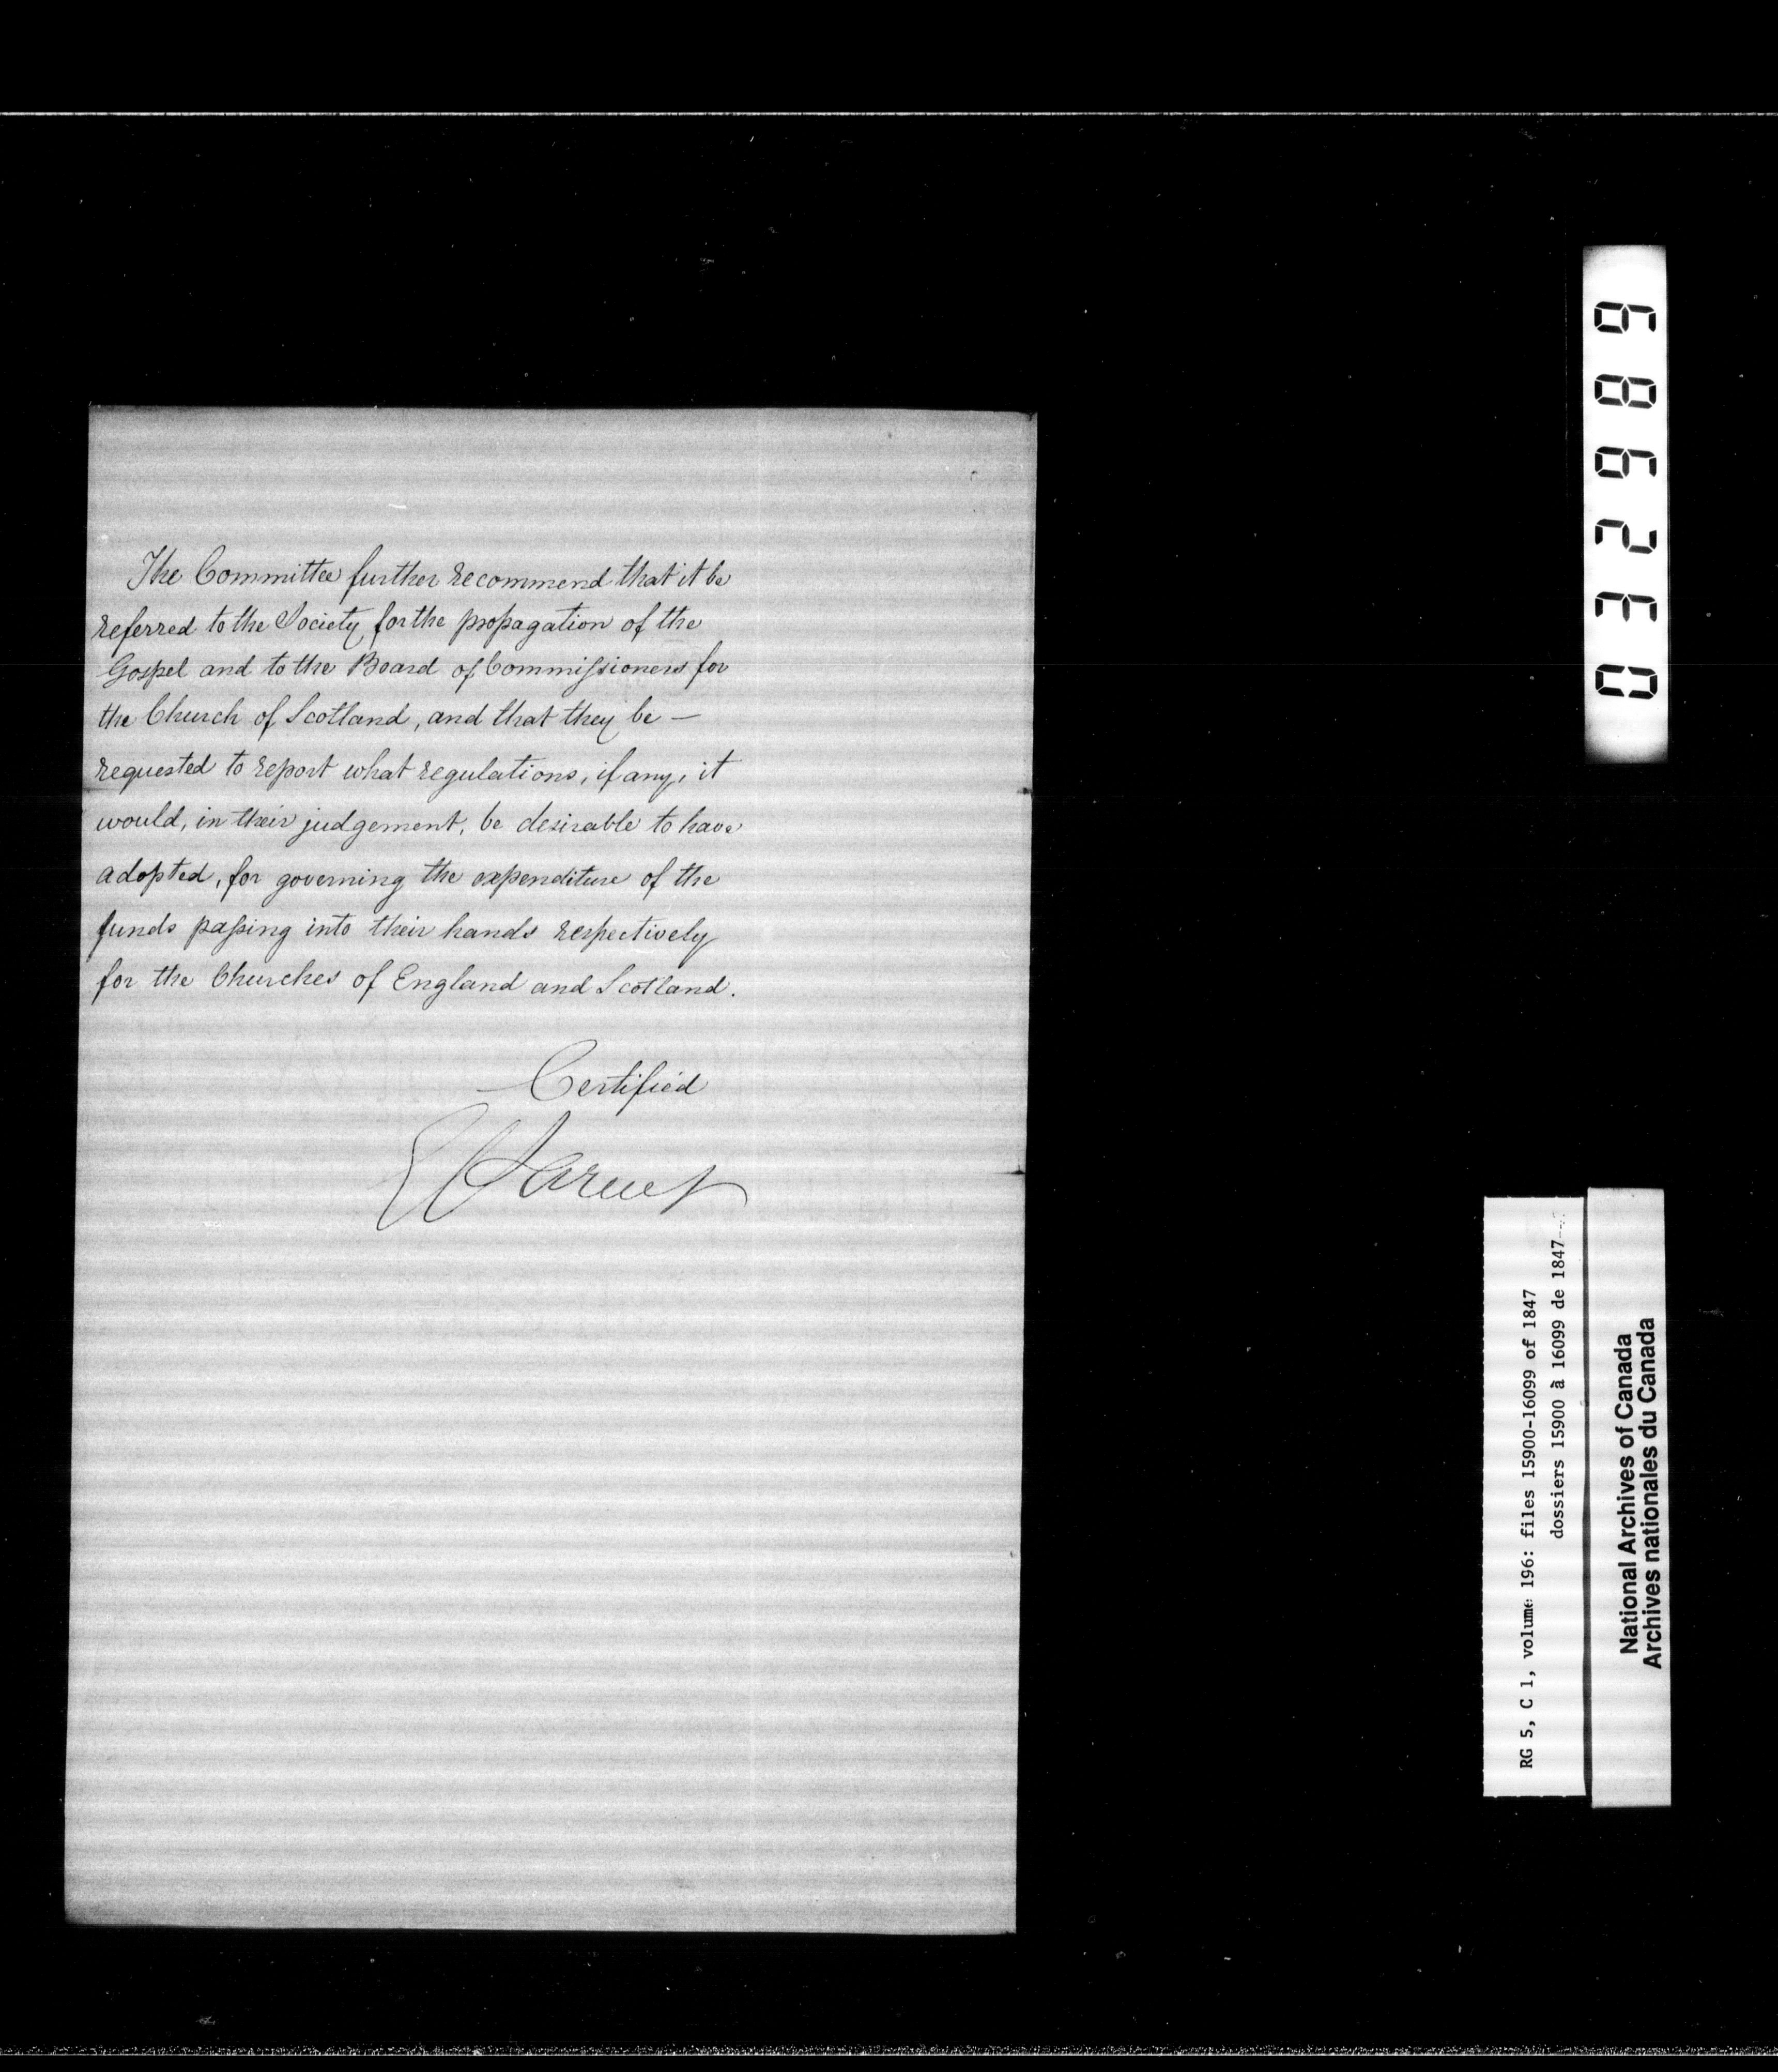 The Committee further recommend that it be
referred to the Society for the propagation of the
Gospel and to the Board of Commissioners for
the Church of Scotland, and that they be —
requested to report what regulations, if any, it
would, in their judgement, be desirable to have
adopted, for governing the expenditure of the
funds passing into their hands respectively
for the Churches of England and Scotland.
Certified
032689
RG 5, C 1, volume 196: files 15900-16099 of 1847
dossiers 15900 à 16099 de 1847
National Archives of Canada
Archives nationales du Canada